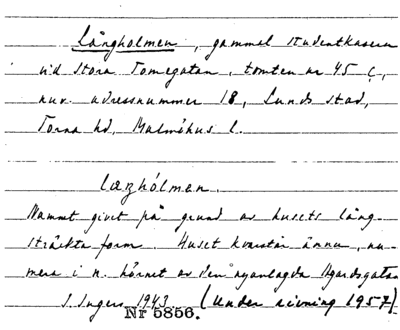 Långholmen, gammal studentkasern
vid Stora Tomegatan, tomten nr 45 C,
nuv. adressnummer 18, Lunds stad,
Torna hd, Malmöhus l.
læŋhólmen.
Namnet givet på grund av husets lång-
sträckta form. Huset kvarstår ännu, nu-
mera i n. hörnet av den nyanlagda Ågardhsgatan
S. Ingers 1943 (Under rivning 1957)
Nr 5856.